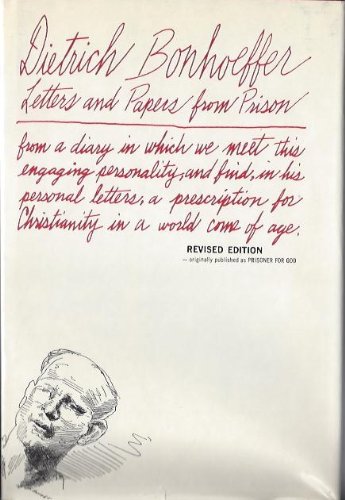 Dietrich Bonhoeffer
Letters and Papers from Prison
from a diary in which we meet this
engaging personality, and find, in his
personal letters, a prescription for
Christianity in a world come of age.
REVISED EDITION
— originally published as PRISONER FOR GOD